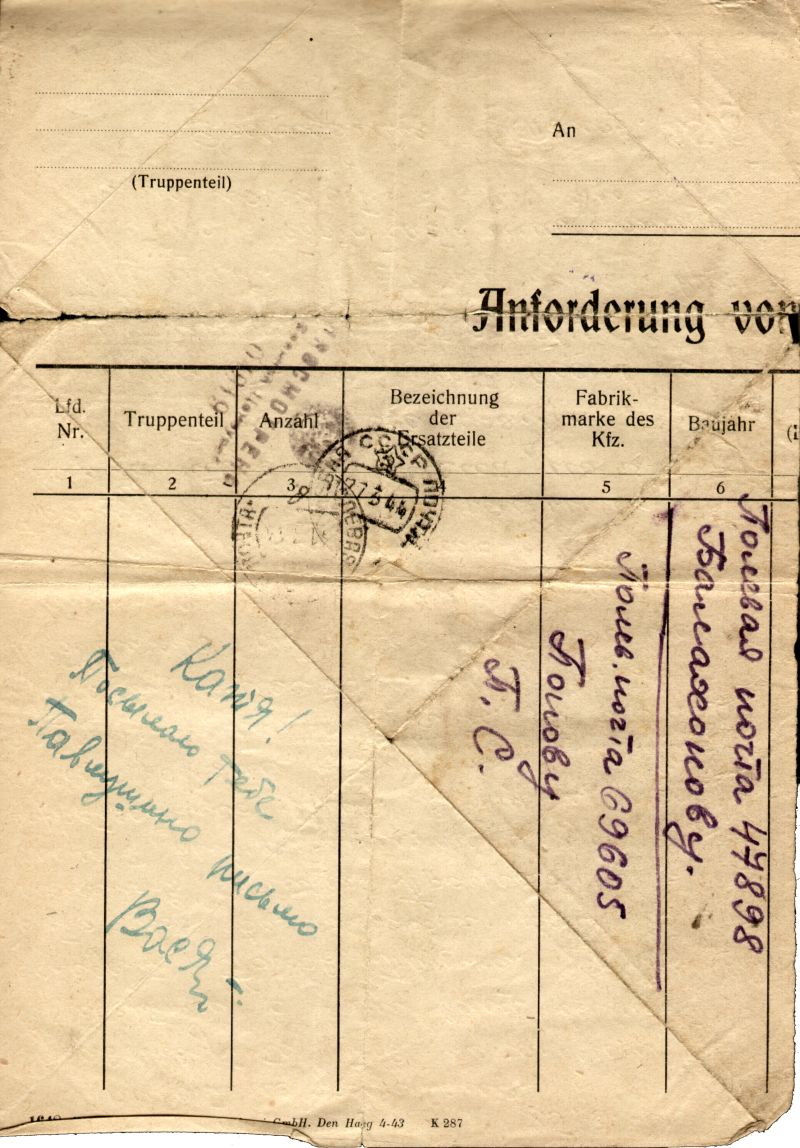 (Truppenteil)
An
Anforderung von
Lfd.
Nr.
Truppenteil
Anzahl
Bezeichnung
der
Ersatzteile
Fabrik-
marke des
Kfz.
Baujahr
1
2
3
4
5
6
ПРОСМОТРЕНО
СССР ПОЧТА
27 3 44
Полевая почта 47898
Балахонову.
Полев. почта 69605
Попову
П. С.
Катя!
Посылаю тебе
Павлушино письмо
Вася
GmbH. Den Haag 4-43 K 287